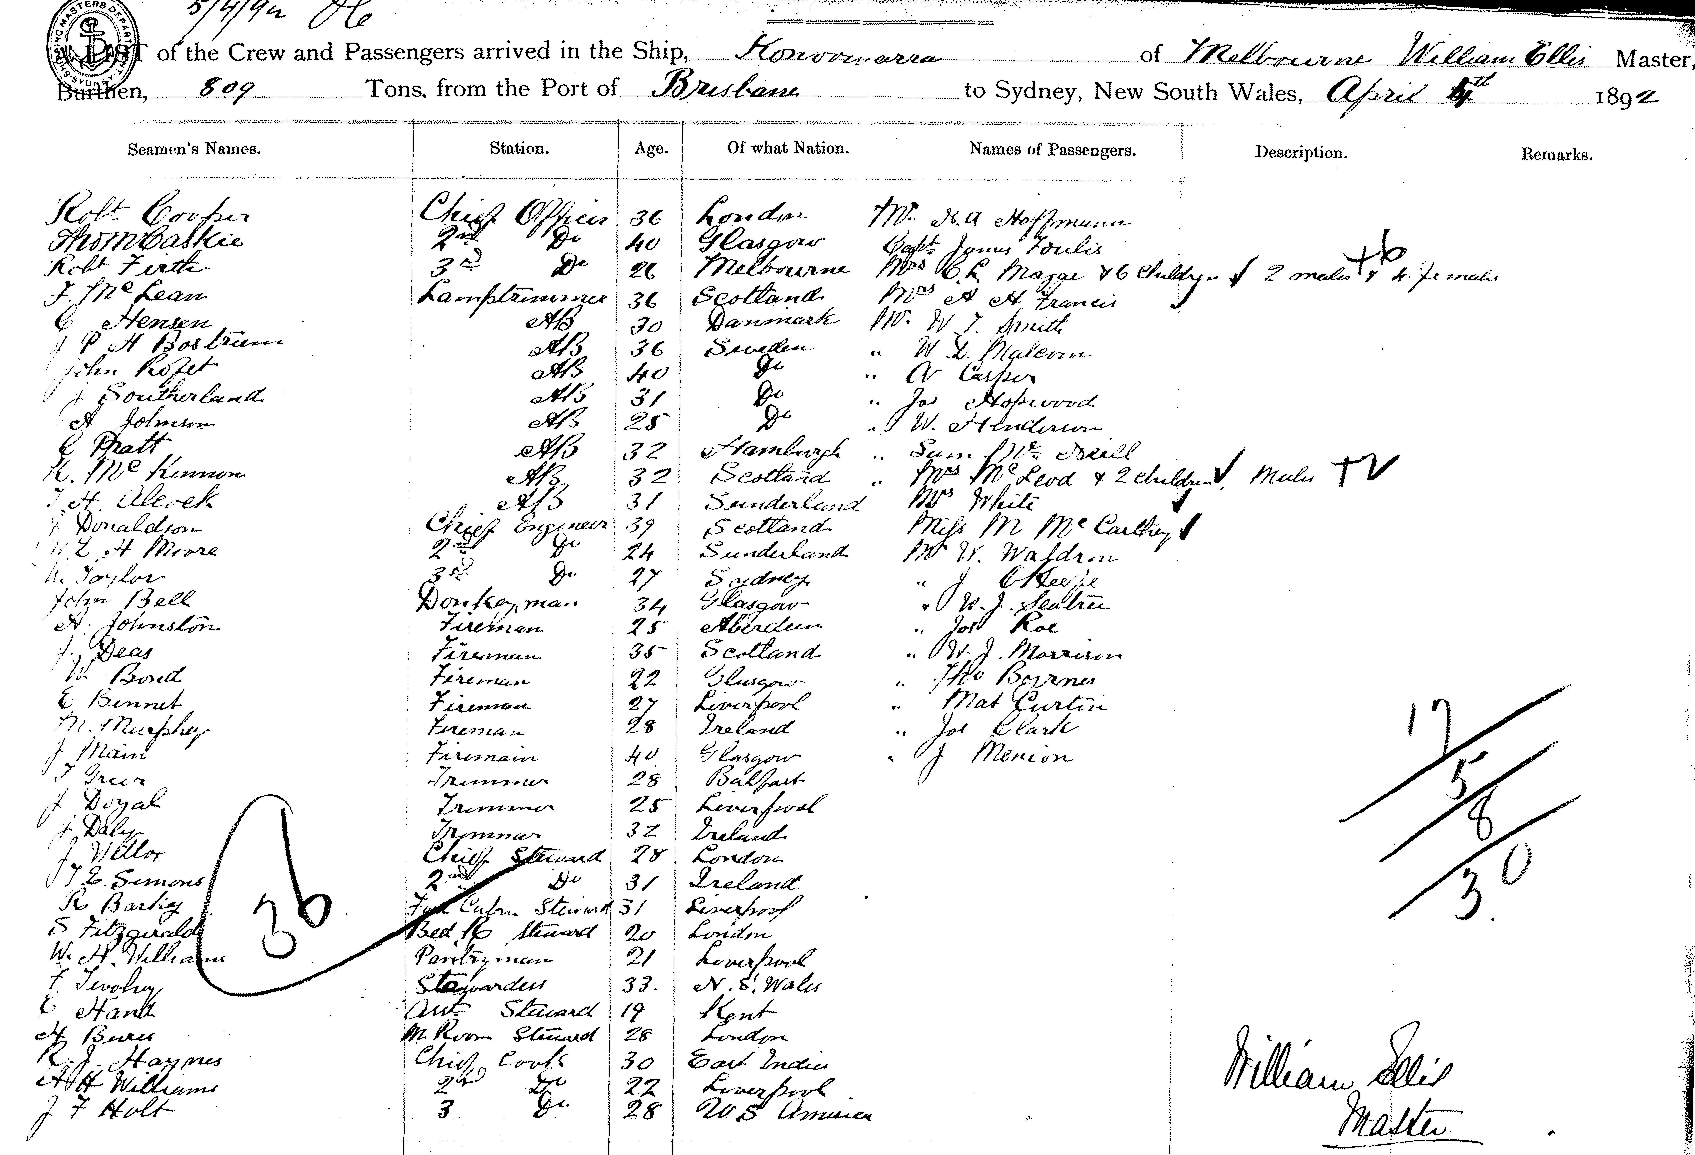 5/4/92
A LIST of the Crew and Passengers arrived in the Ship, Konoowarra of Melbourne William Ellis Master,
Burthen, 809 Tons, from the Port of Brisbane to Sydney, New South Wales, April 4th 1892
Seamen's Names. Station. Age. Of what Nation. Names of Passengers. Description. Remarks.
Robt Cooper Chief Officer 36 London Mr. H. A Hoffmann
Thom Caskie 2nd Do 40 Glasgow Capt James Foulis
Robt Firth 3rd Do 26 Melbourne Mrs C. L. Magae & 6 Children 2 males & 4 females +6
J. McLean Lamptrimmer 36 Scotland Mrs A H Francis
C Hensen AB 30 Danmark Mr. W J. Smith
J P H Bostrum AB 36 Sweden " W L. Malcom
John Rofet AB 40 Do " A Casper
J Southerland AB 31 Do " Jas Hopwood
A Johnson AB 25 Do " W. Henderson
C Pratt AB 32 Hamburgh " Sam Mc Neill
K. McKinnon AB 32 Scotland " Mrs McLeod & 2 children, Males +V
T. H. Alcock AB 31 Sunderland Mrs White
J Donaldson Chief Engineer 39 Scotland Miss M McCarthey
W. L H Moore 2nd Do 24 Sunderland Mr W. Waldron
W. Taylor 3rd Do 27 Sydney " J OKeefe
John Bell Donkeyman 34 Glasgow " W. J. Seatree
A. Johnston Fireman 25 Aberdeen " Jos Roe
J. Deas Fireman 35 Scotland " W. J. Morrison
W Bond Fireman 22 Glasgow " Tho Boyrnes
E Binnet Fireman 27 Liverpool " Mat Curtin
M. Murphy Fireman 28 Ireland " Jos Clark
J Main Firemain 40 Glasgow " J Menion
T Greer Trimmer 28 Balfast
J Doyal Trimmer 25 Liverpool
J Daly Trimmer 32 Ireland
J. Vellor Chief Steward 28 London
T E. Simons 2nd Do 31 Ireland
R Barkey Fore Cabin Steward 31 Liverpool
S Fitzgerald Bed R Steward 20 London
W. H. Williams Pantryman 21 Liverpool
F. Tevolrey Stewardess 33. N. S. Wales
C Hand Ast Steward 19 Kent
H Bures M. Room Steward 28 London
R. J. Haynes Chief Cook 30 East Indies
A H Williams 2nd Do 22 Liverpool
J F Holt 3 Do 28 U S America
36
17
5
8
30
William Ellis
Master